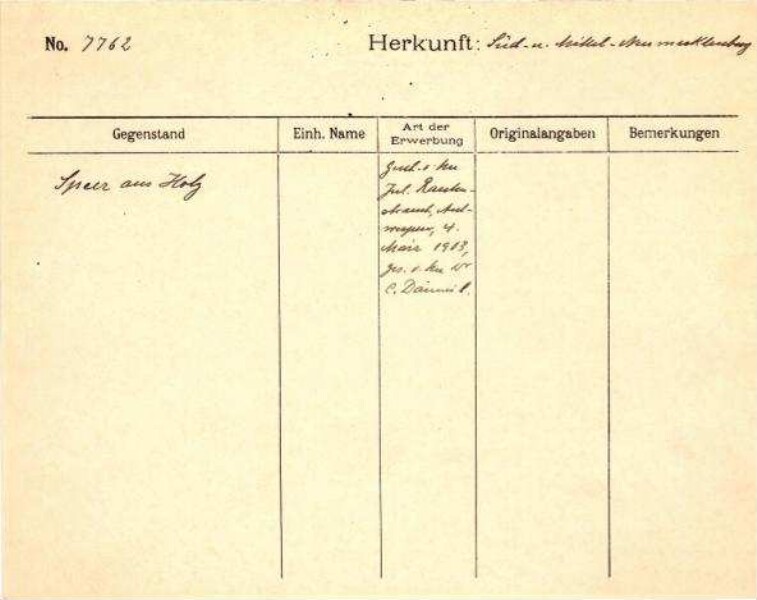 No. 7762 Herkunft: Süd- u. Mittel-Neumecklenburg
Gegenstand Einh. Name Art der Erwerbung Originalangaben Bemerkungen
Speer aus Holz
Gesch. v. Hn
Jul.
Antwerpen, 4.
März 1913,
ges. v. Hn Dr
C.